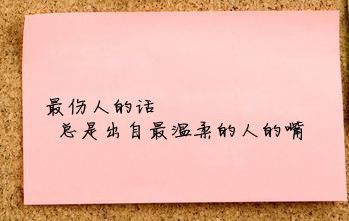 最伤人的话
总是出自最温柔的人的嘴